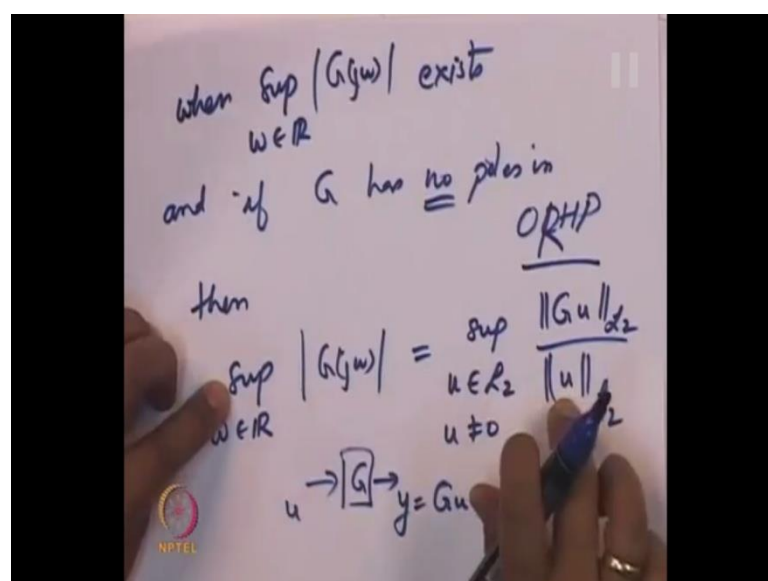 when sup |G(jω)| exists
ω ∈ ℝ
and if G has no poles in
ORHP
then
sup |G(jω)| = sup ‖Gu‖ℒ₂
ω ∈ ℝ u ∈ ℒ₂ ‖u‖ℒ₂
u ≠ 0
u → G → y = Gu
NPTEL